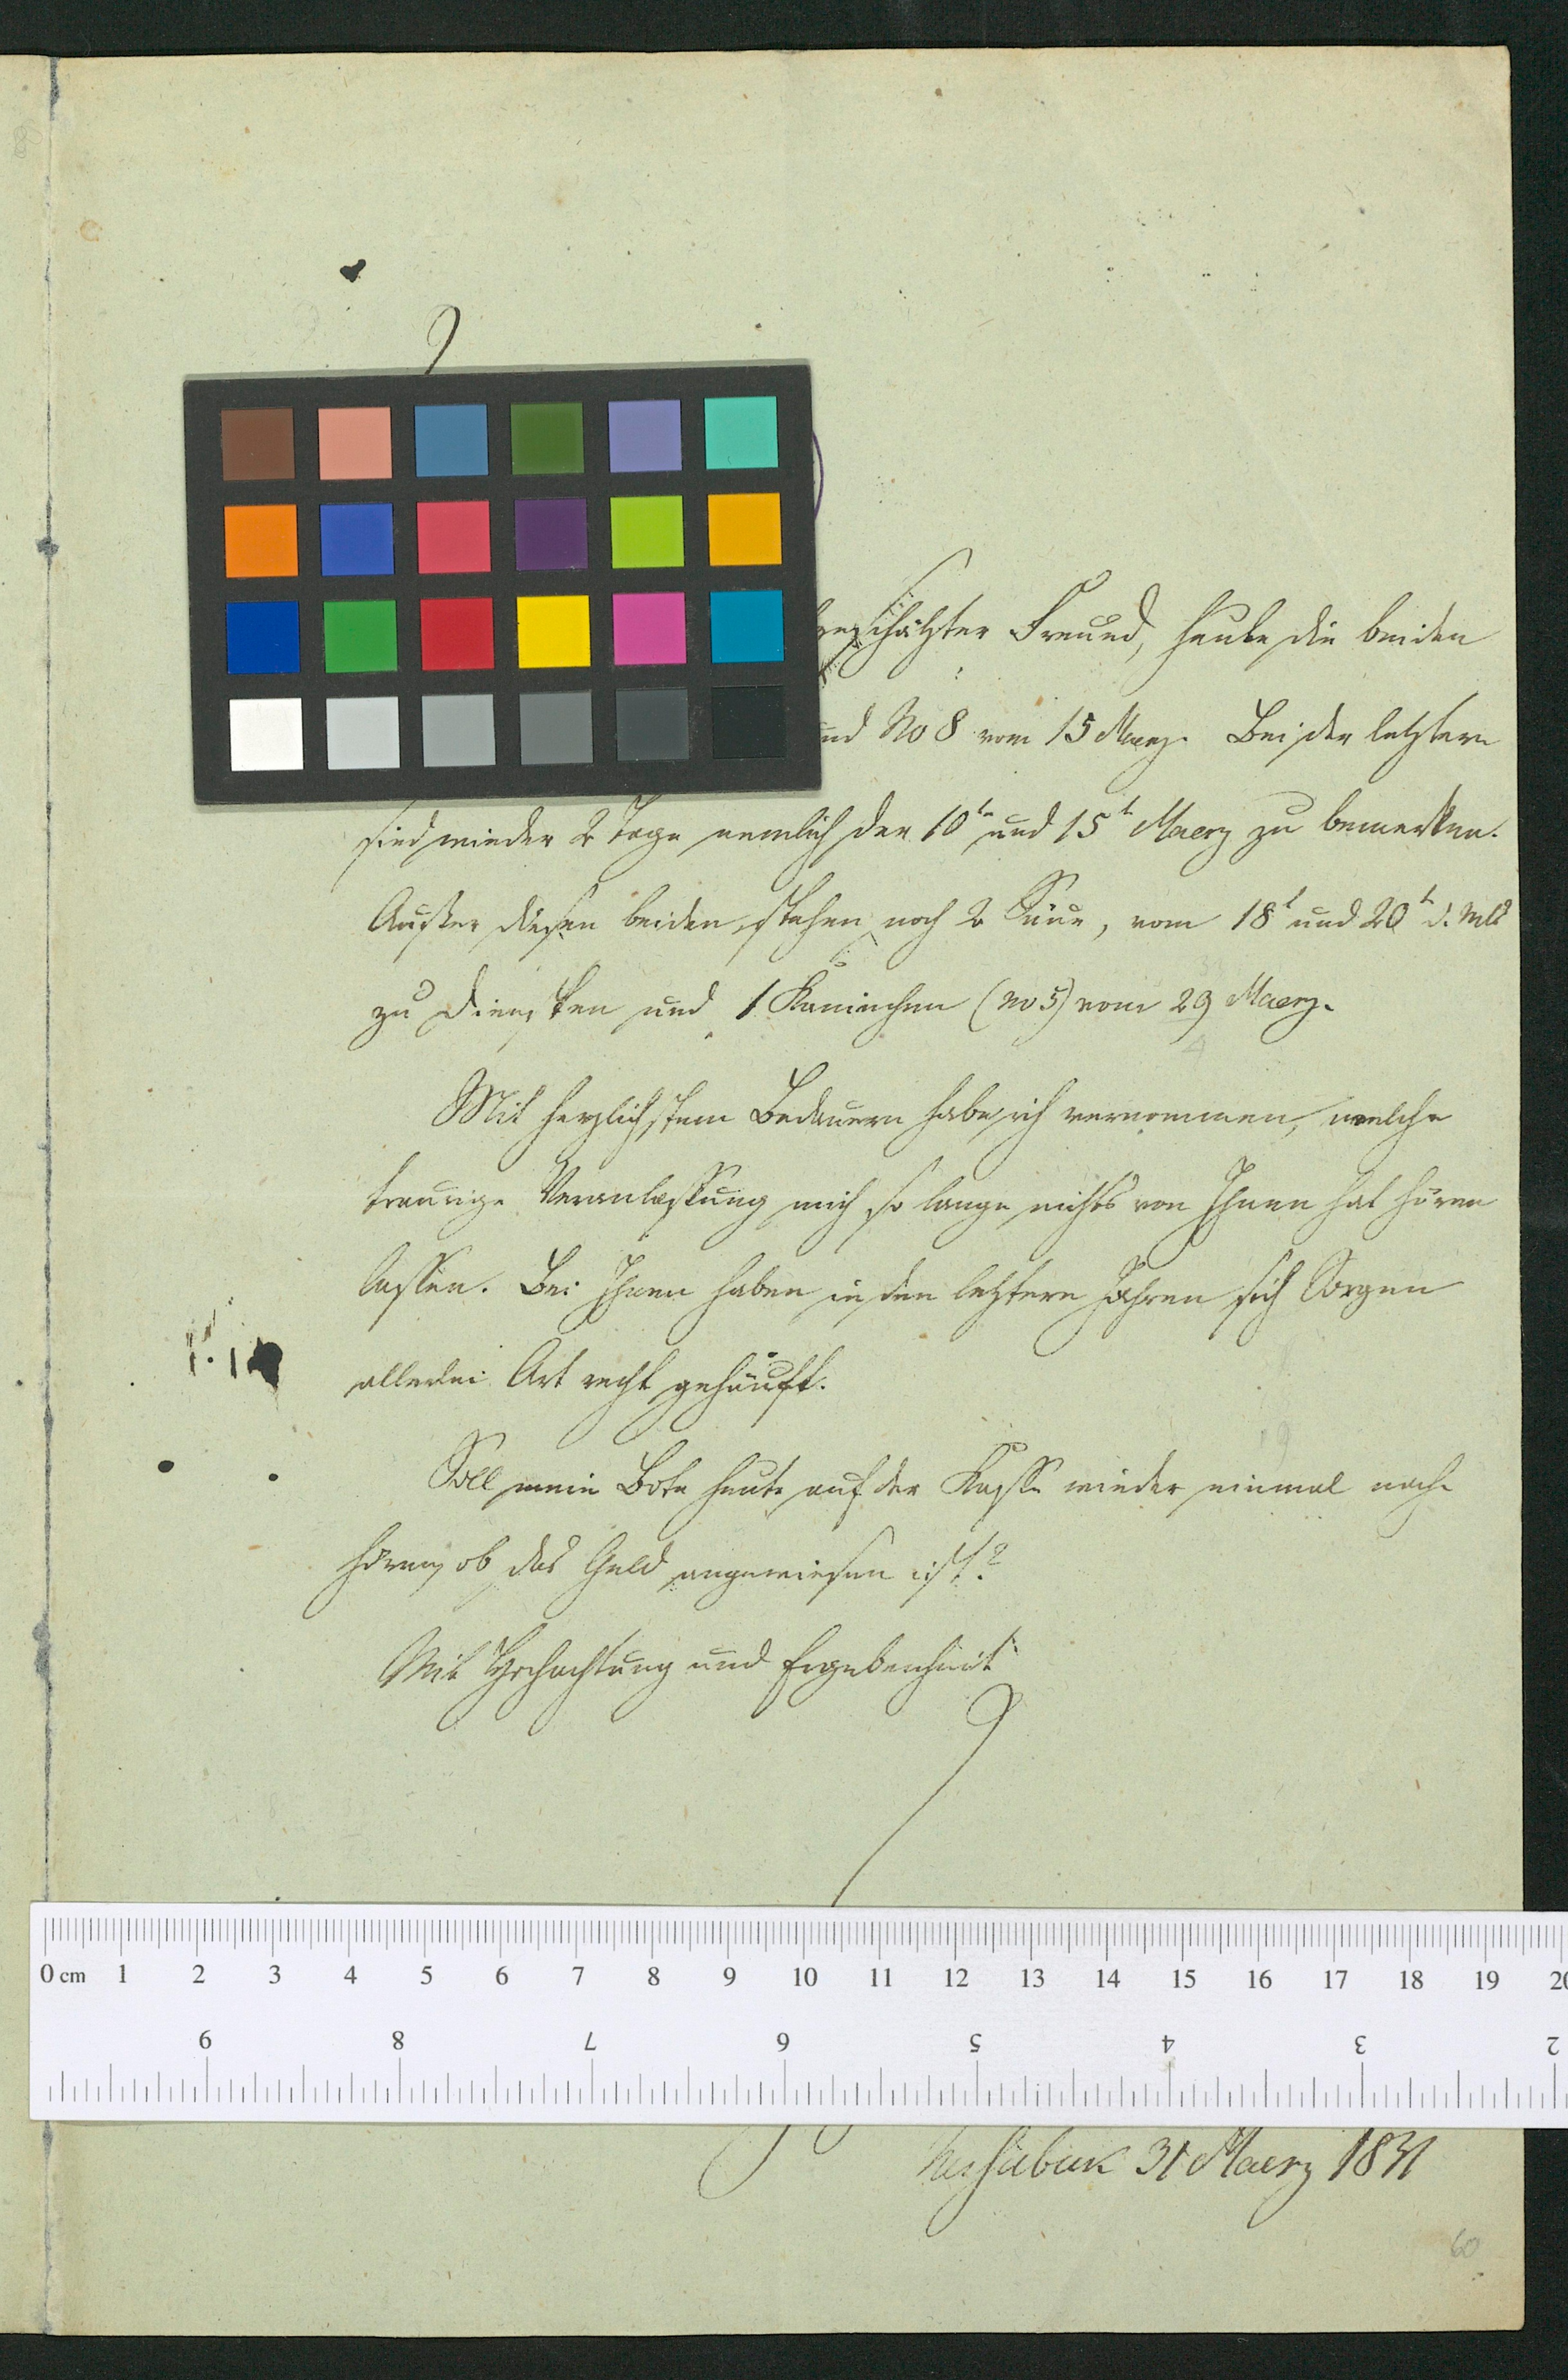 geschätzter Freund, heute die beiden
und No 8 vom 15 Maerz. Bei der letztern
sind wieder 2 Tage nemlich der 10t und 15t Maerz zu bemerken.
Außer diesen beiden stehen noch 2 Säue, vom 18t und 20t d. Mts
zu Diensten und 1 Kaninchen (No 5) vom 29 Maerz.
Mit herzlichstem Bedauern habe ich vernommen, welche
traurige Veranlassung mich so lange nichts von Ihnen hat hören
lassen. Bei Ihnen haben in den letztern Jahren sich Sorgen
allerlei Art recht gehäuft.
Soll mein Bote heute auf der Kasse wieder einmal nach-
hören, ob das Geld angewiesen ist?
Mit Hochachtung und Ergebenheit
0 cm 1 2 3 4 5 6 7 8 9 10 11 12 13 14 15 16 17 18 19 20
9 8 7 6 5 4 3 2
31 Maerz 1831
60